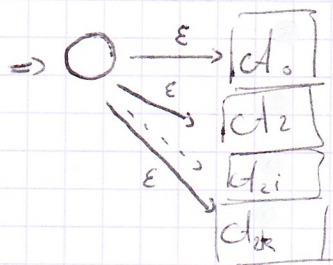 ⇒ ε 𝒜₀
ε 𝒜₂
𝒜₂ᵢ
ε 𝒜₂ₖ